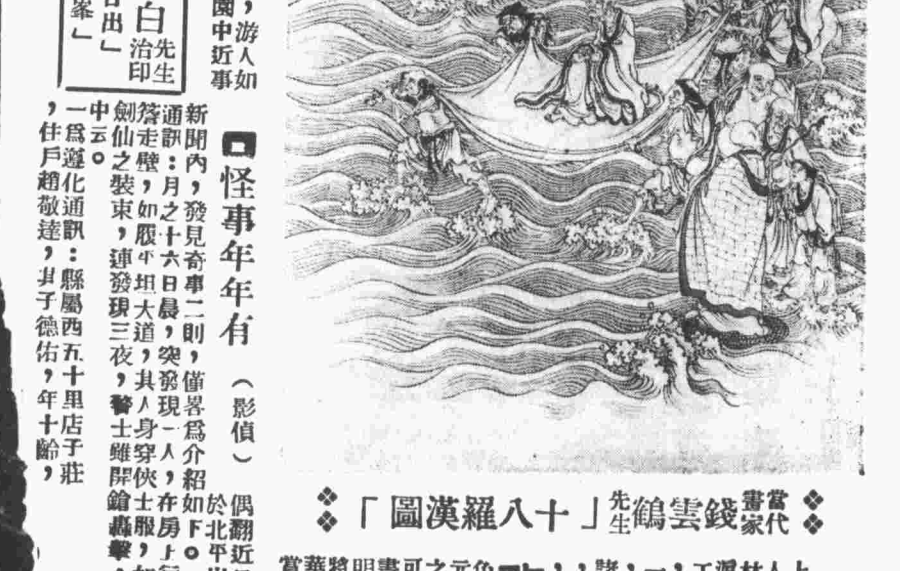 當代畫家錢雲鶴先生「十八羅漢圖」
，游人如
園中近事
白先生治印
出」
峯」
怪事年年有（影偵）
偶翻近
於北平
新聞內，發見奇事二則，僅畧爲介紹如下。
通訊：月之十六日晨，突發現一人，在房上
簷走壁，如履平坦大道，其人身穿俠士服，如
劍仙之裝束，連發現三夜，警士雖開鎗轟擊，
中云。
一爲遵化通訊：縣屬西五十里店子莊
，住戶趙敬達，其子德佑，年十齡，